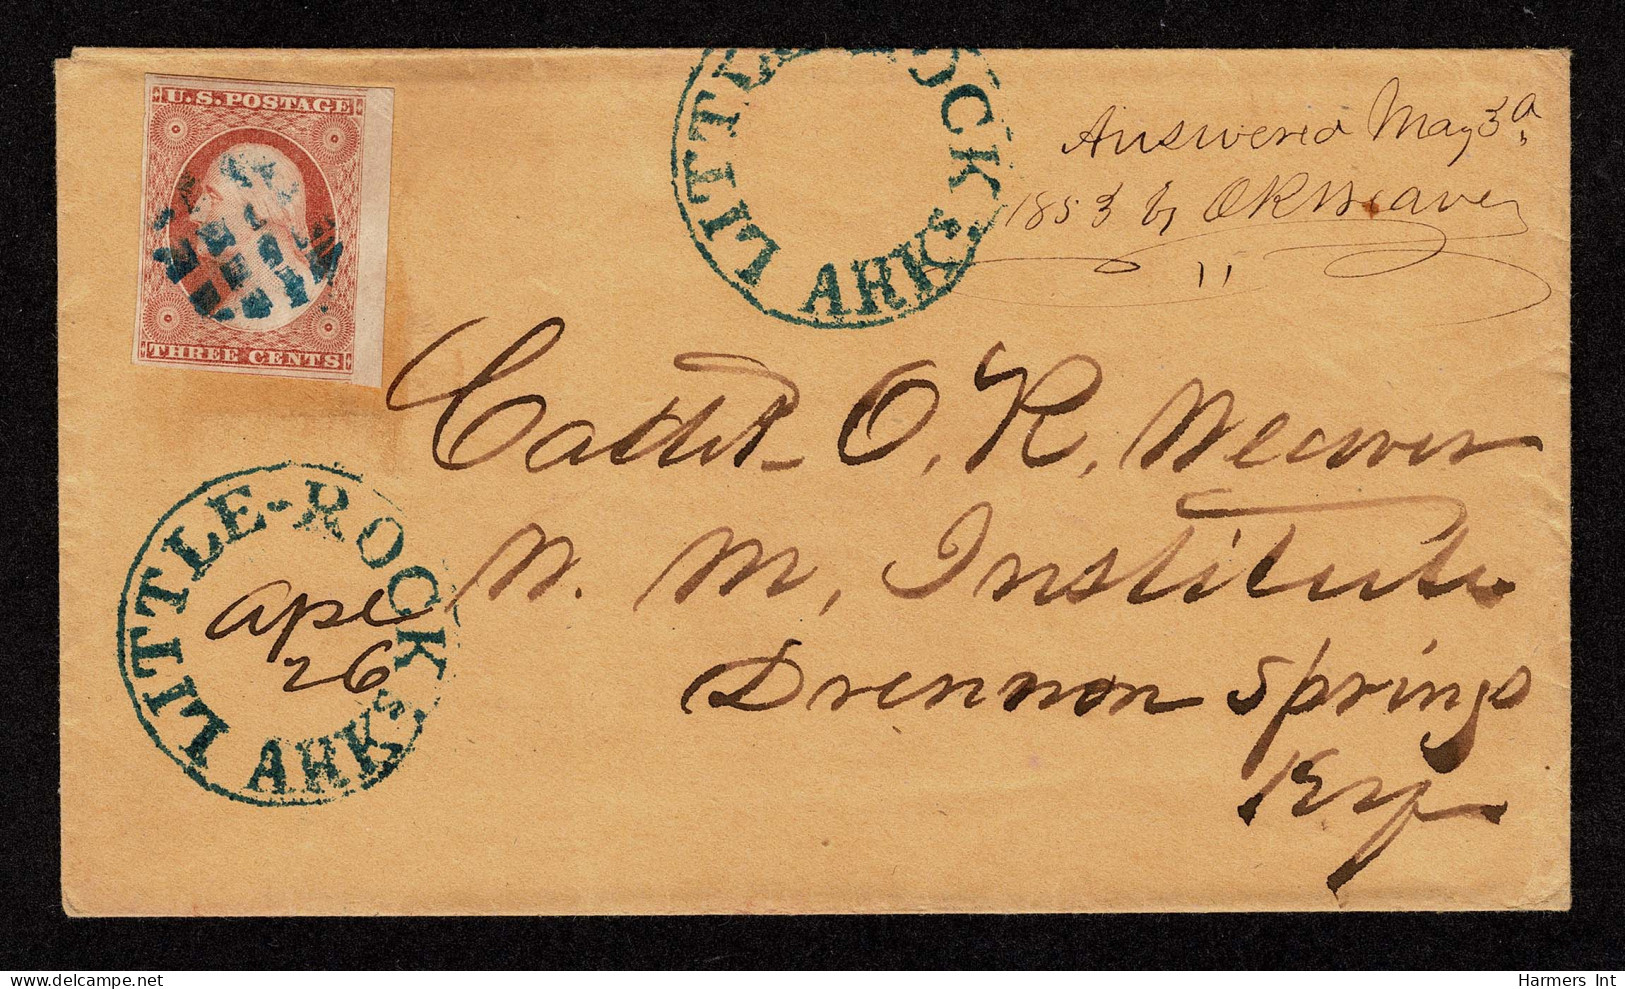 U.S. POSTAGE
THREE CENTS
LITTLE-ROCK
ARKs.
Answered May 3d,
1853 by O R Weaver
"
Cadet O. R. Weaver
W. M. Institute
Drennon Springs
Ky
LITTLE-ROCK
ARKs.
Apl
26
Harmers Int